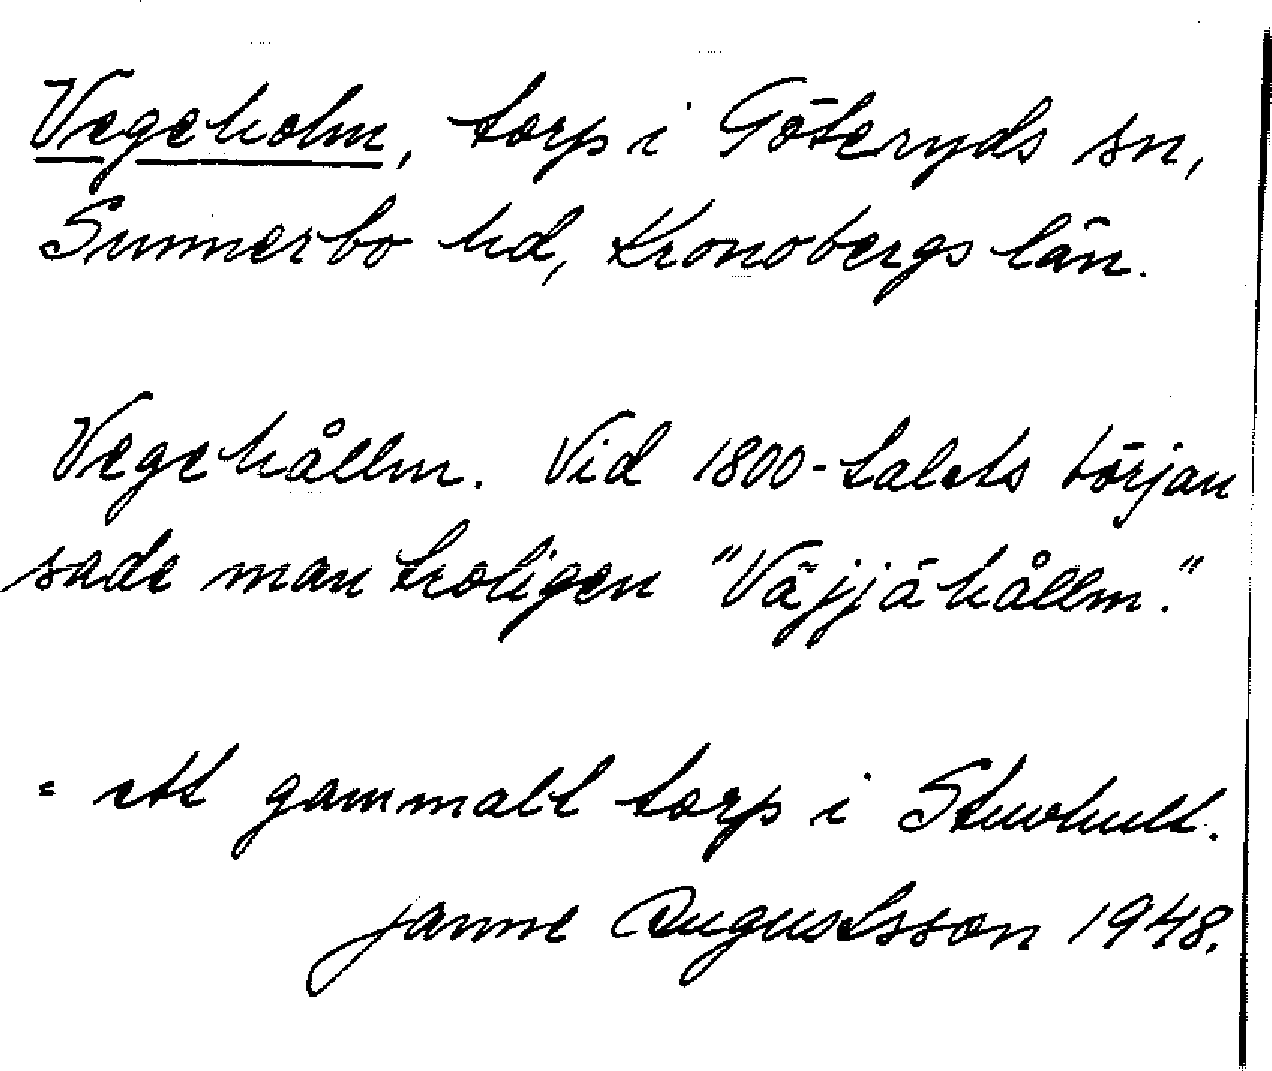 Vegeholm, torp i Göteryds sn,
Sunnerbo hd, Kronobergs län.
Vegehållm. Vid 1800-talets början
sade man troligen "Väjjähållm."
= ett gammalt torp i Stuvhult.
Janne Augustsson 1948.